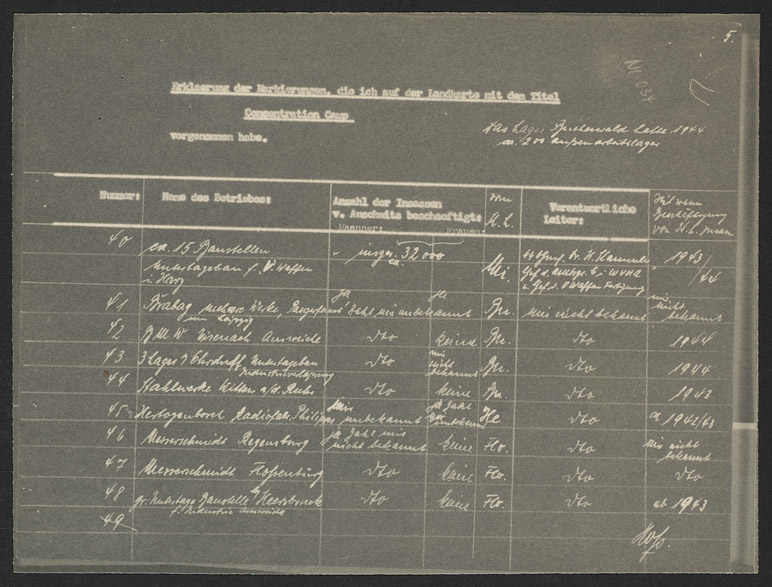 5.
NI-034
Erklaerung der Markierungen, die ich auf der Landkarte mit dem Titel
Concentration Camp
vorgenommen habe.
Das Lager Buchenwald hatte 1944
ca. 200 Außenarbeitslager
Nummer: Name des Betriebes: Anzahl der Insassen v. Auschwitz beschaeftigt: Maenner: Frauen: vom K.L. Verantwortliche Leiter: Seit wann Beschäftigung von
40 ca. 15 Baustellen insges. ca. 32 000 Mi. SS Gruf. Dr. H. Kammler 1943/44
Untertagebau f. V. Waffen Chef d. Amtsgr. C i. WVHA
i. Harz u. Chef d. V Waffen Fertigung
41 Brabag mehrere Werke, ja Zahl mir unbekannt ja Bu. mir nicht bekannt mir nicht bekannt
um Leipzig
42 BMW Eisenach Ausweiche dto keine Bu. dto 1944
43 3 Lager i. Ohrdruff Untertagebau dto mir nicht bekannt Bu. dto 1944
Industrieverlagerung
44 Stahlwerke Witten a/d. Ruhr dto keine Bu. dto 1943
45 Herzogenbosch Radiofabr. Philipps mir unbekannt ja Zahl mir unbekannt He dto ca 1942/43
46 Messerschmidt Regensburg ja Zahl mir nicht bekannt keine Flo. dto mir nicht bekannt
47 Messerschmidt Flossenbürg dto keine Flo. dto dto
48 gr. Untertage Baustelle Hersbruck dto keine Flo. dto ab 1943
f. Industrie Ausweiche
49
Höß.